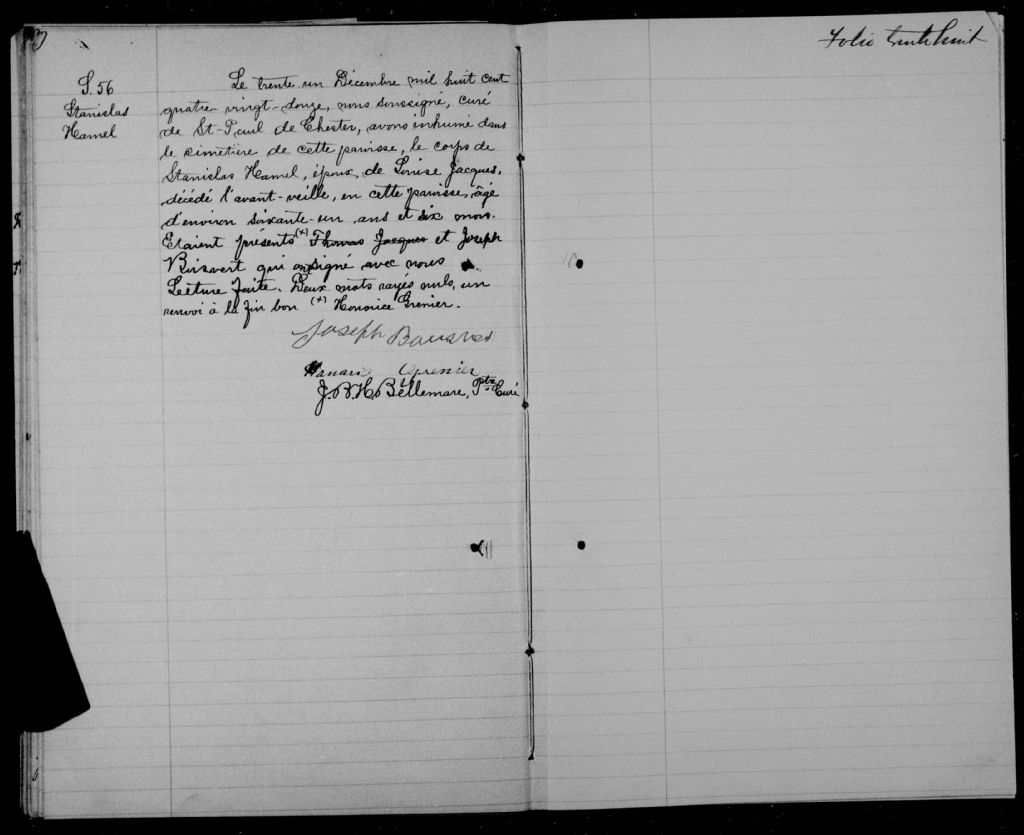 Folio trente huit
S. 56
Stanislas
Hamel
Le trente-un Décembre mil huit cent
quatre-vingt-douze, nous soussigné, curé
de St-Paul de Chester, avons inhumé dans
le cimetière de cette paroisse, le corps de
Stanislas Hamel, époux de Louise Jacques,
décédé l'avant-veille, en cette paroisse, âgé
d'environ soixante-un ans et six mois.
Etaient présents (x) Thomas Jacques et Joseph
Boisvert qui ont signé avec nous
Lecture faite. Deux mots rayés nuls, un
renvoi à la fin bon (x) Honorice Grenier.
Joseph
Grenier
J. B. H. Bellemare, Ptre Curé